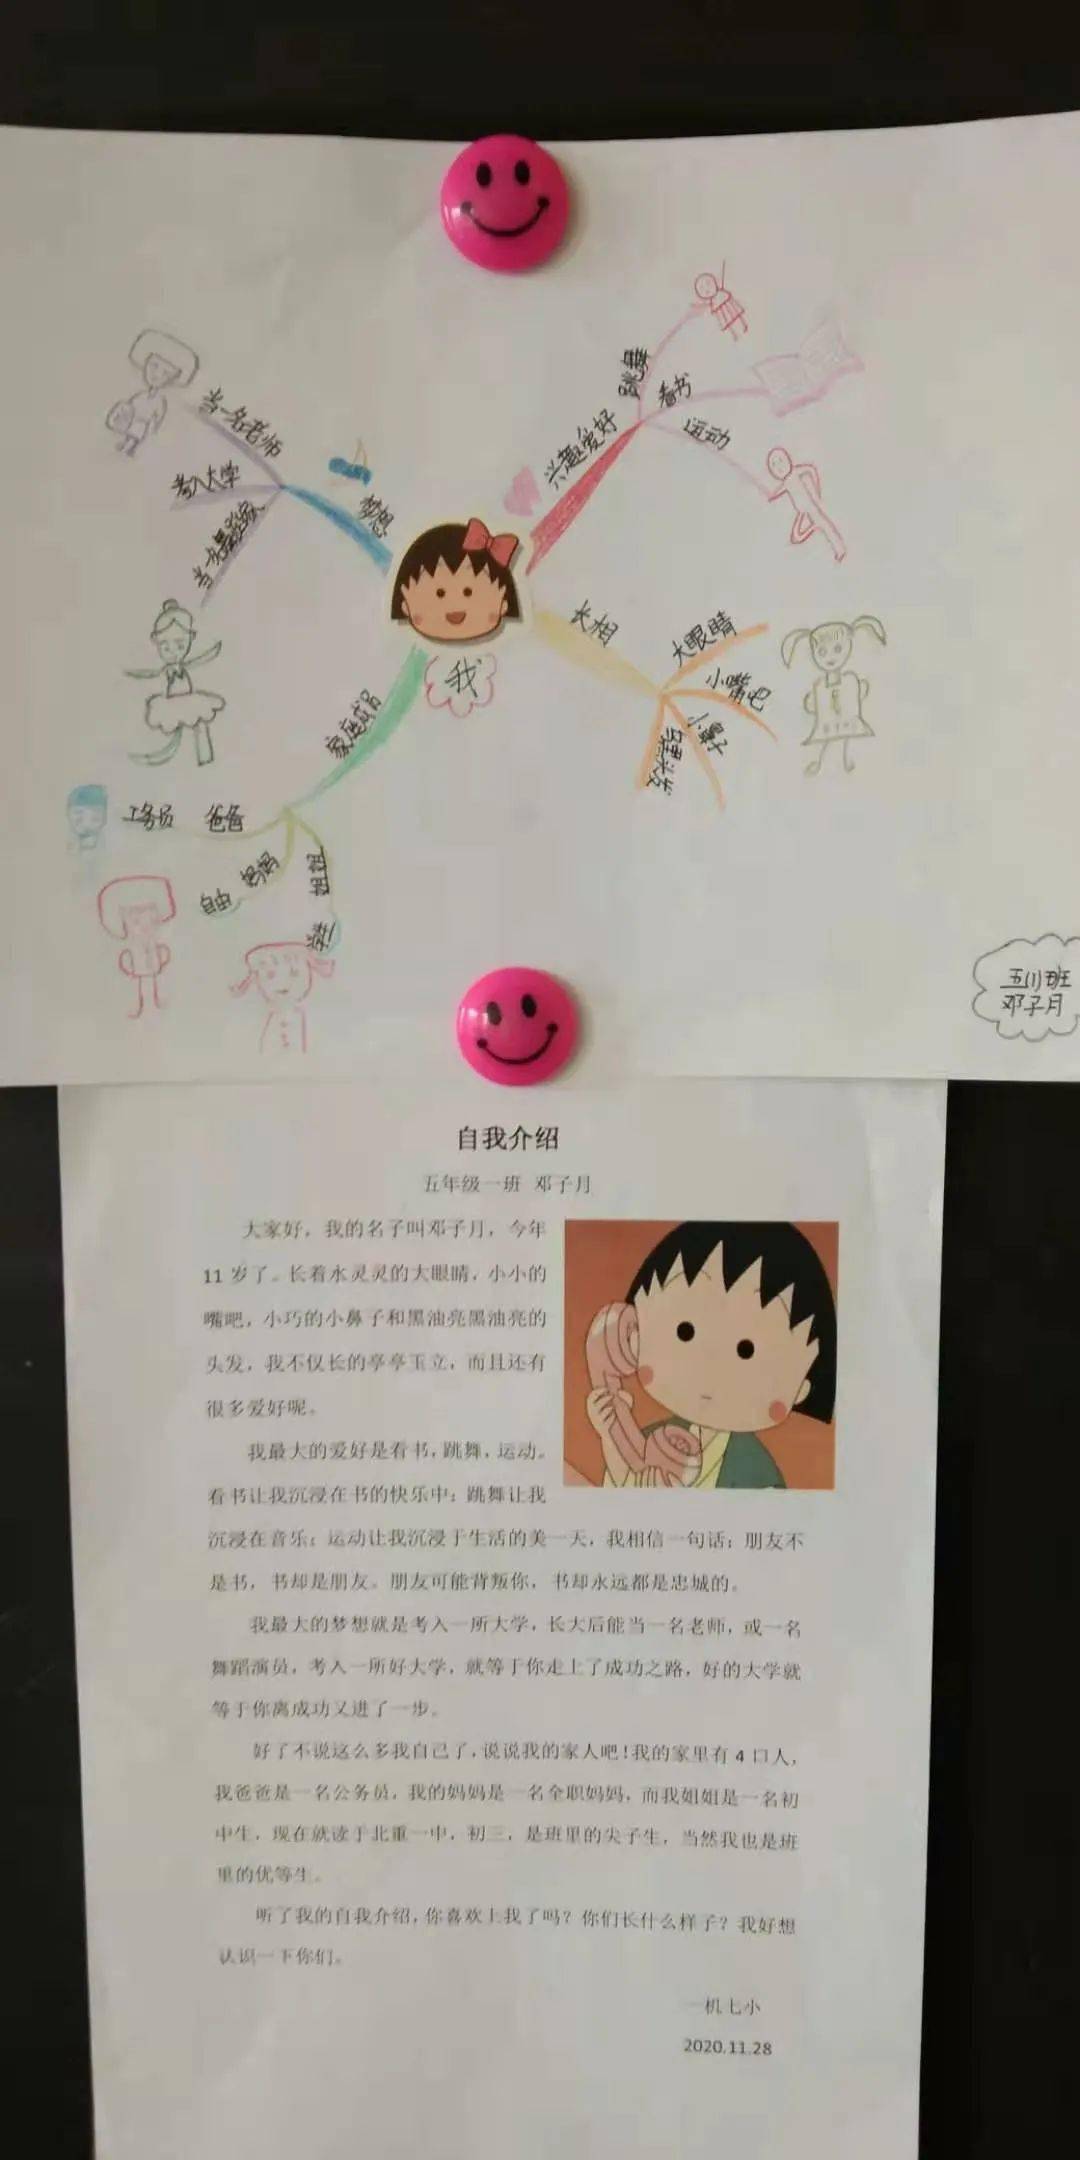 跳舞
看书
运动
兴趣爱好
当一名老师
考入大学
梦想
长相
大眼睛
小嘴吧
小鼻子
黑头发
我
家庭成员
爸爸
妈妈
自由
姐姐
五(1)班
邓子月
自我介绍
五年级一班 邓子月
大家好，我的名子叫邓子月，今年
11 岁了。长着水灵灵的大眼睛，小小的
嘴吧，小巧的小鼻子和黑油亮黑油亮的
头发，我不仅长的亭亭玉立，而且还有
很多爱好呢。
我最大的爱好是看书，跳舞，运动。
看书让我沉浸在书的快乐中；跳舞让我
沉浸在音乐；运动让我沉浸于生活的美一天，我相信一句话：朋友不
是书，书却是朋友。朋友可能背叛你，书却永远都是忠城的。
我最大的梦想就是考入一所大学，长大后能当一名老师，或一名
舞蹈演员，考入一所好大学，就等于你走上了成功之路，好的大学就
等于你离成功又进了一步。
好了不说这么多我自己了，说说我的家人吧！我的家里有 4 口人，
我爸爸是一名公务员，我的妈妈是一名全职妈妈，而我姐姐是一名初
中生，现在就读于北重一中，初三，是班里的尖子生，当然我也是班
里的优等生。
听了我的自我介绍，你喜欢上我了吗？你们长什么样子？我好想
认识一下你们。
一机七小
2020.11.28